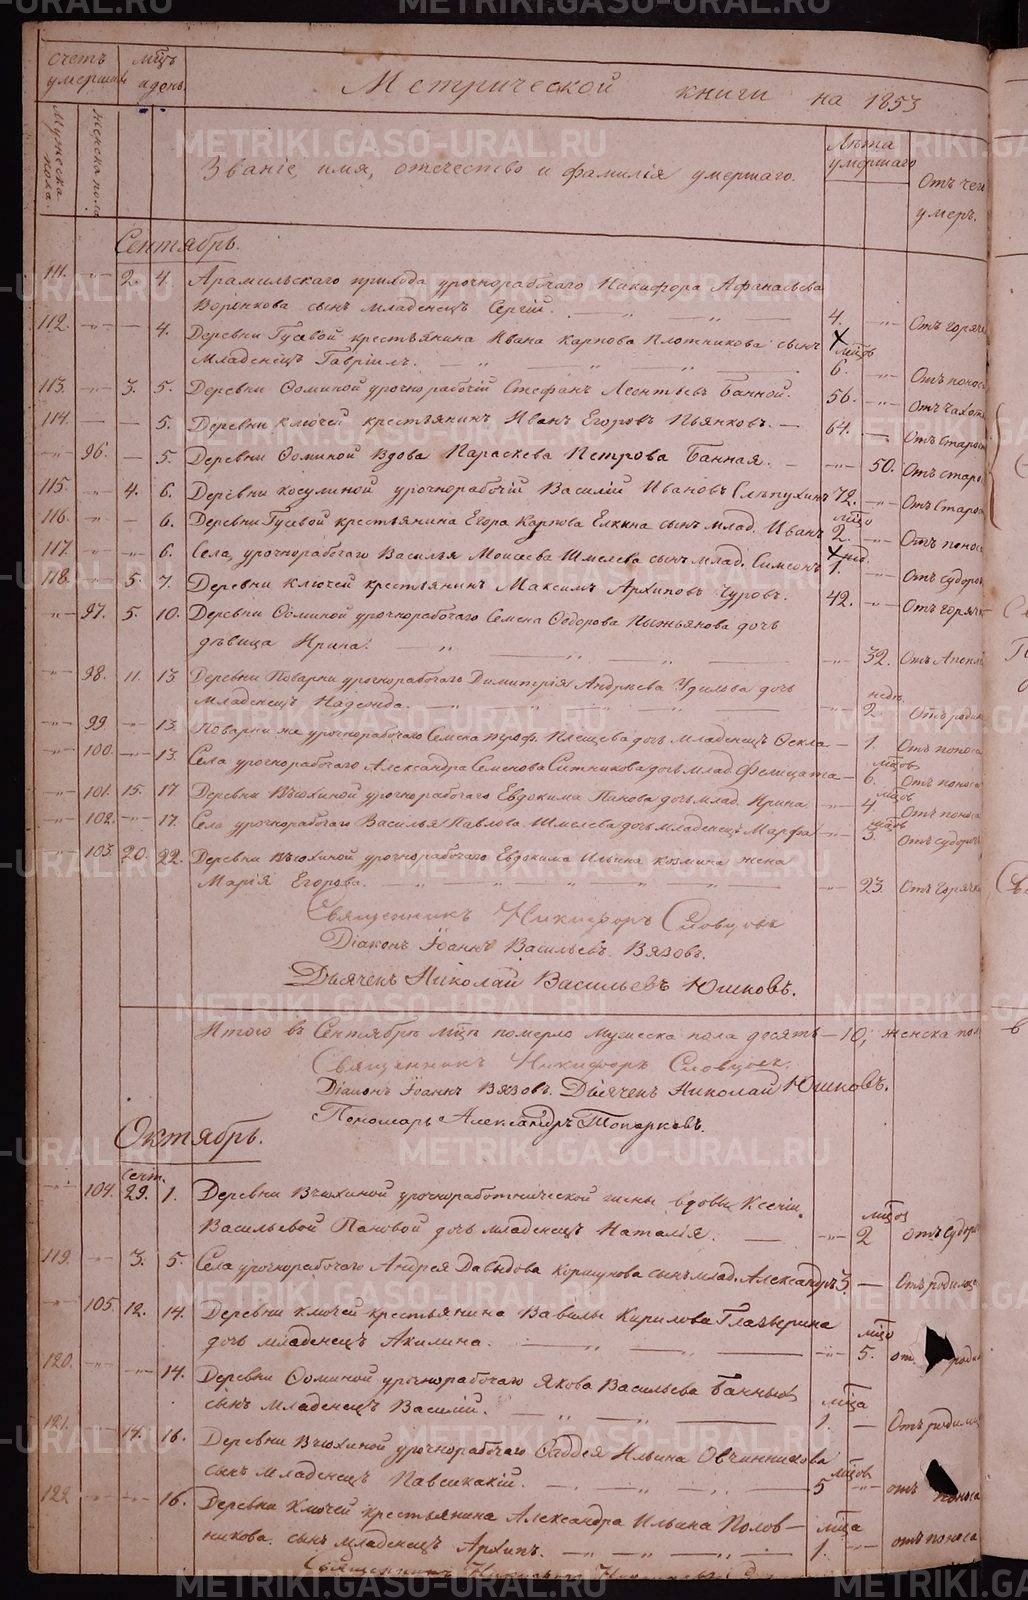 Метрической книги на 1853
счетъ умершихъ
мцъ и день
Мужеска пола.
Женска пола
Званіе, имя, отечество и фамилія умершаго.
Лѣта умершаго
Отъ чего умеръ.
Сентябрь.
111. 2. 4. Арамильскаго прихода урочнорабочаго Никифора Афанасьева
сынъ младенецъ Сергій. 4. Отъ горяч
112. 4. Деревни Гусевой крестьянина Ивана Карпова Плотникова сынъ мцъ
Младенецъ Гавріилъ. 6. Отъ понос
113. 3. 5. Деревни Осминой урочнорабочій Стефанъ Леонтьевъ Банной. 56. Отъ чахот
114. 5. Деревни Ключей крестьянинъ Иванъ Егоровъ Пьянковъ. 64. Отъ старос
96. 5. Деревни Осминой вдова Параскева Петрова Банная. 50. Отъ старо
115. 4. 6. Деревни Косулиной урочнорабочій Василій Ивановъ Слѣпухинъ 72. Отъ старос
116. 6. Деревни Гусевой крестьянина Егора Карпова Елкина сынъ млад. Иванъ 2. Отъ понос
117. 6. Села, урочнорабочаго Василья Моисеева Шмелева сынъ млад. Симеонъ 1. Отъ судоро
118. 5. 7. Деревни Ключей крестьянинъ Максимъ Архиповъ Чуровъ. 42. Отъ горяч
97. 5. 10. Деревни Осминой урочнорабочаго Семена Ѳедорова Пыжьянова дочь
дѣвица Ирина. 32. Отъ Апопл
98. 11. 13 Деревни Поварни урочнорабочаго Димитрія Андреева Удилова дочь недѣ.
Младенецъ Надежда. 2. Отъ родим
99 13. Поварни же урочнорабочаго Семена Троф. Плещева дочь младенецъ Ѳекла 1. Отъ поноса
100. 13. Села урочнорабочаго Александра Семенова Ситникова дочь млад. Фелицата 6. Отъ поноса
101. 15. 17 Деревни Вьюхиной урочнорабочаго Евдокима Панова дочь млад. Ирина 4 Отъ поноса
102. 17. Села урочнорабочаго Василья Павлова Шмелева дочь младенецъ Марфа 3 Отъ судорочь
103. 20. 22. Деревни Вьюхиной урочнорабочаго Евдокима Ильина Козмина жена
Марія Егорова. 23. Отъ горячк
Священникъ Никифоръ Словцовъ
Діаконъ Іоаннъ Васильевъ Вязовъ.
Дьячекъ Николай Васильевъ Юшковъ.
Итого въ Сентябрѣ мцѣ померло мужеска пола десять — 10, женска пол
Священникъ Никифоръ Словцовъ.
Діаконъ Іоаннъ Вязовъ. Дьячекъ Николай Юшковъ.
Пономарь Александръ Топорковъ.
Октябрь.
Сент.
104. 29. 1. Деревни Вьюхиной урочноработнической жены вдовы Ксеніи
Васильевой Пановой дочь младенецъ Наталія. 2 отъ судоро
119. 3. 5. Села урочнорабочаго Андрея Давыдова Коршунова сынъ млад. Александръ 3. Отъ родимца
105. 12. 14. Деревни Ключей крестьянина Вавилы Кирилова Глазырина
дочь младенецъ Акилина. 5. от роди
120. 14. Деревни Осминой урочнорабочаго Якова Васильева Банныхъ
сынъ младенецъ Василій. 1. Отъ родимц
121. 14. 16. Деревни Вьюхиной урочнорабочаго Фаддея Ильина Овчинникова
сынъ младенецъ Павсикакій. 5 отъ поноса
122 16. Деревни Ключей крестьянина Александра Ильина Полов-
никова сынъ младенецъ Архипъ. 1. отъ поноса
METRIKI.GASO-URAL.RU